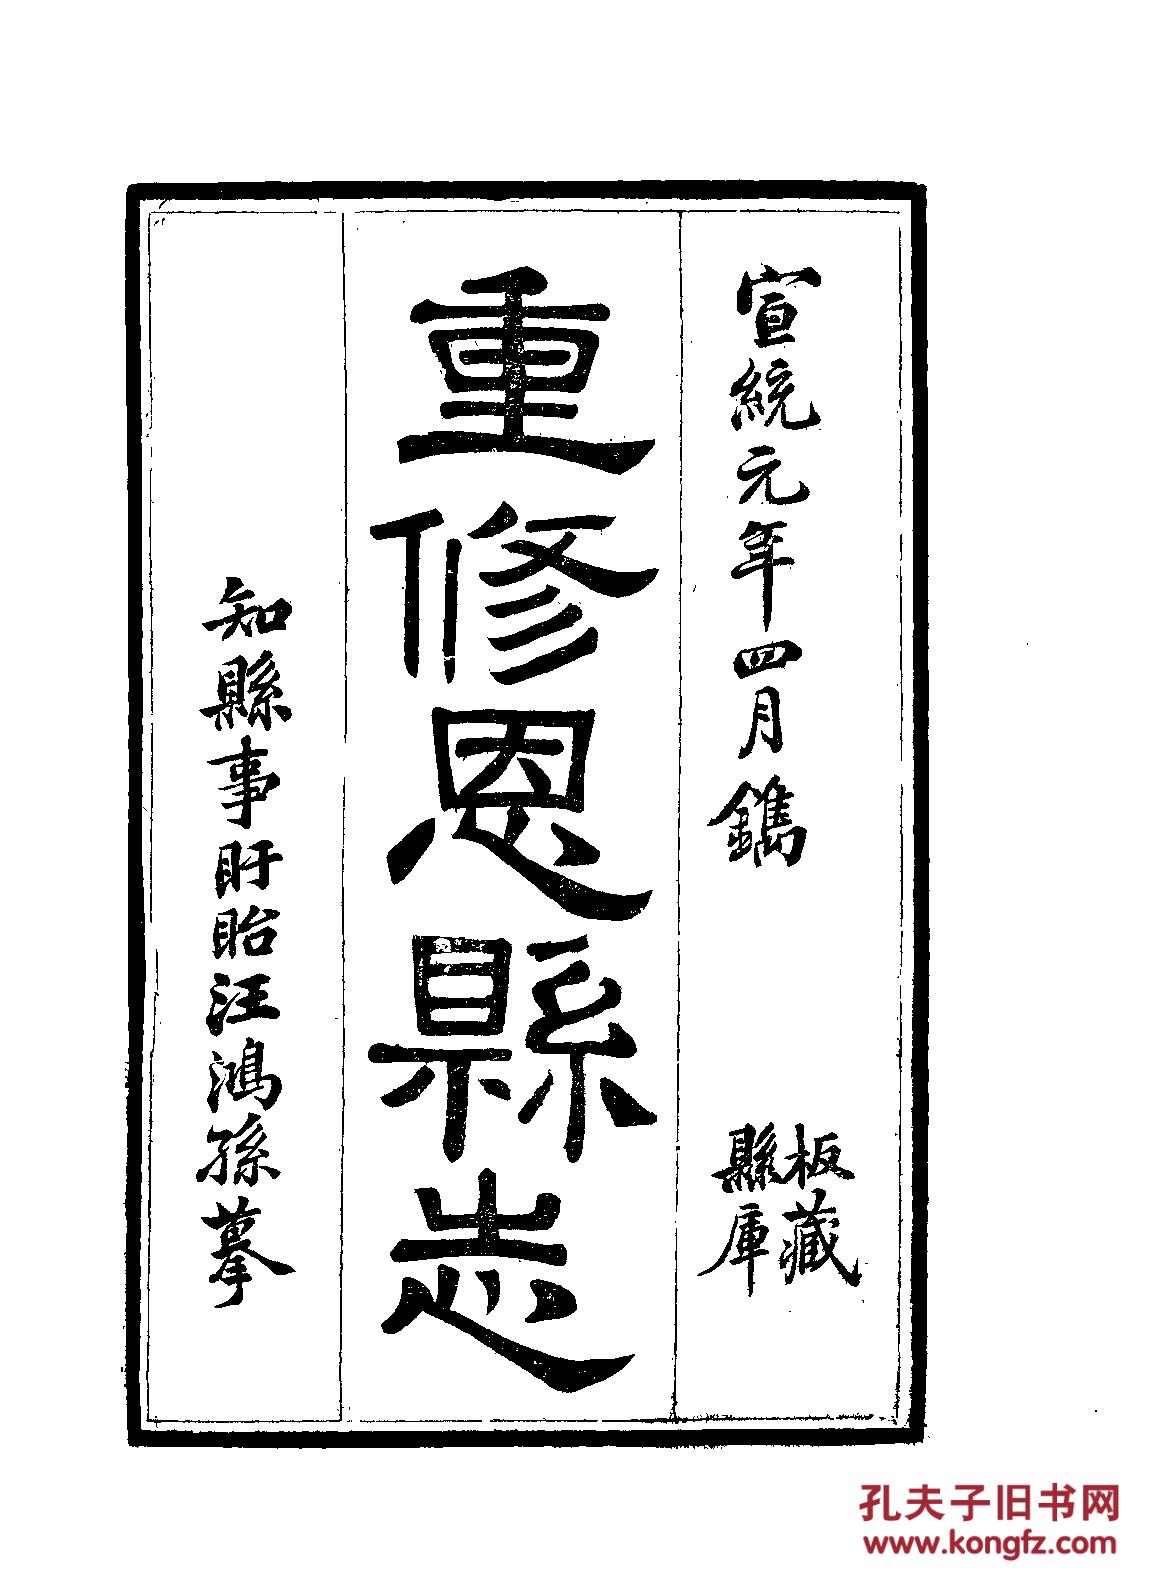 宣統元年四月鐫
板藏
縣庫
重修恩縣志
知縣事盱眙汪鴻孫摹
孔夫子旧书网
www.kongfz.com